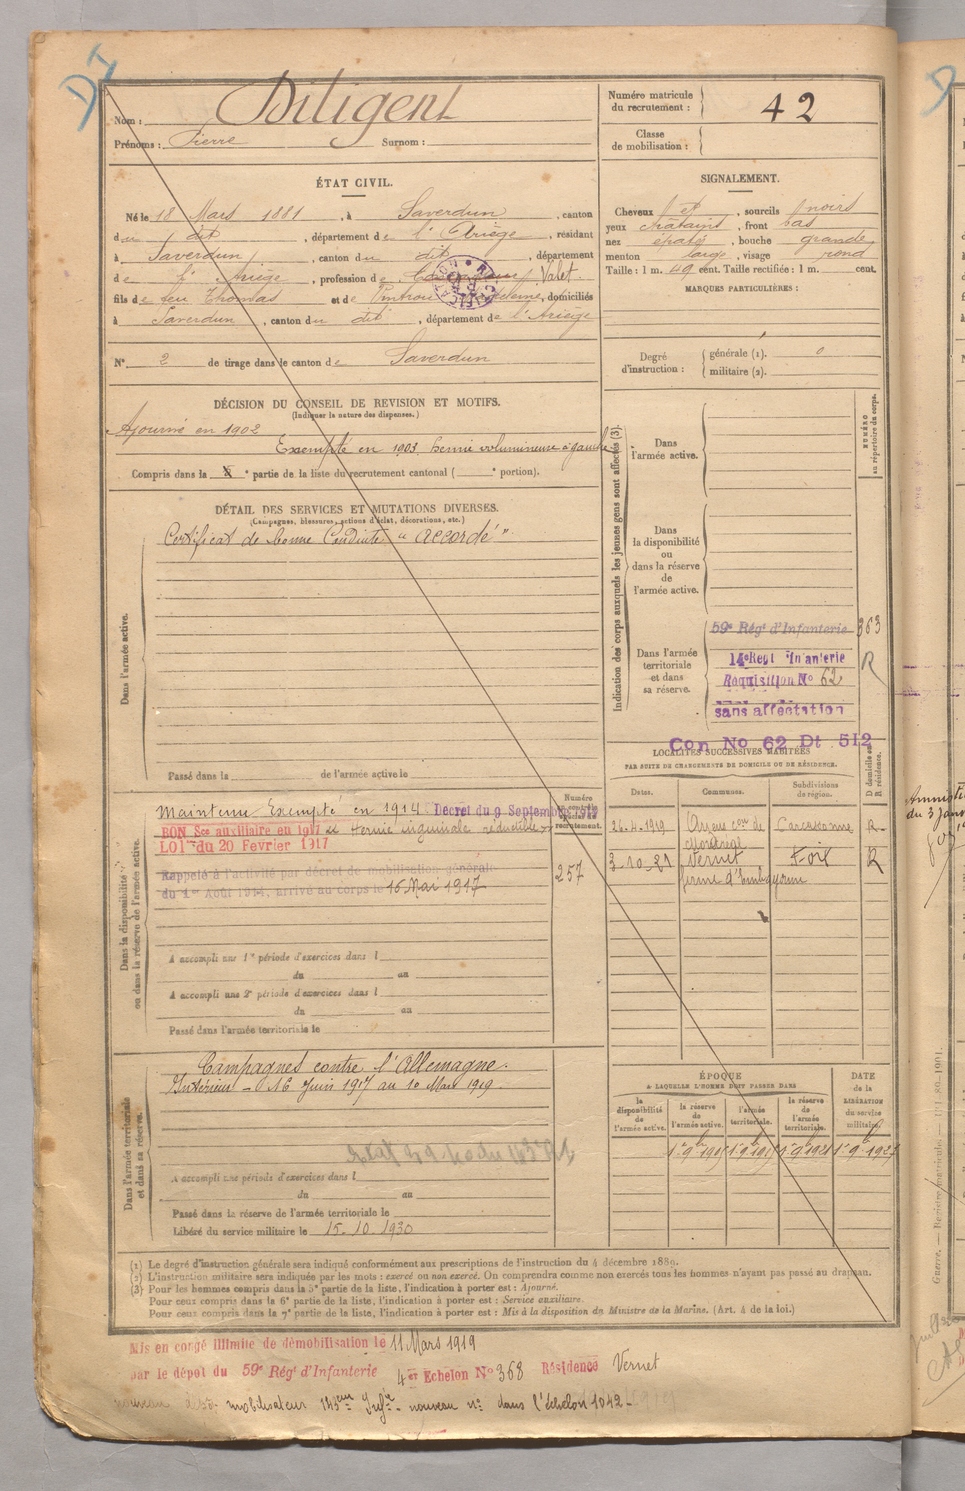 DI
Nom : Diligent
Prénoms : Pierre Surnom :
Numéro matricule du recrutement : 42
Classe de mobilisation :
ÉTAT CIVIL.
Né le 18 Mars 1881, à Saverdun, canton
du dit, département de l'Ariège, résidant
à Saverdun, canton du dit, département
de l'Ariège, profession de Valet
fils de feu Thomas et de domiciliés
à Saverdun, canton du dit, département de l'Ariège
N° 2 de tirage dans le canton de Saverdun
SIGNALEMENT.
Cheveux et, sourcils noirs
yeux châtains, front bas
nez épaté, bouche grande
menton large, visage rond
Taille : 1 m. 49 cent. Taille rectifiée : 1 m. cent.
MARQUES PARTICULIÈRES :
Degré d'instruction : générale (1). 0
militaire (2).
DÉCISION DU CONSEIL DE REVISION ET MOTIFS.
(Indiquer la nature des dispenses.)
Ajourné en 1902
Exempté en 1903 hernie volumineuse à gauche
Compris dans la e partie de la liste du recrutement cantonal ( e portion).
DÉTAIL DES SERVICES ET MUTATIONS DIVERSES.
(Campagnes, blessures, actions d'éclat, décorations, etc.)
Dans l'armée active.
Certificat de bonne Conduite "Accordé".
Passé dans la de l'armée active le
Indication des corps auxquels les jeunes gens sont affectés (3).
NUMÉRO au répertoire du corps.
Dans l'armée active.
Dans la disponibilité ou dans la réserve de l'armée active.
Dans l'armée territoriale et dans sa réserve.
59e Régt d'Infanterie 363
14e Regt Infanterie R
Réquisition No 62
sans affectation
Con No 62 Dt 512
LOCALITÉS SUCCESSIVES HABITÉES
PAR SUITE DE CHANGEMENTS DE DOMICILE OU DE RÉSIDENCE.
Dates. Communes. Subdivisions de région. D domicile ou R résidence.
26-4-1919 Carcassonne R
3-10-21 Vernet Foix R
ferme
Dans la disponibilité ou dans la réserve de l'armée active.
Numéro
Maintenu Exempté en 1914 Décret du 9 Septembre 1914
BON Sce auxiliaire en 1917 hernie inguinale réductible
LOI du 20 Fevrier 1917
Rappelé à l'activité par décret de mobilisation générale
du 1er Août 1914, arrivé au corps le 16 Mai 1917
257
A accompli une 1re période d'exercices dans l
du au
A accompli une 2e période d'exercices dans l
du au
Passé dans l'armée territoriale le
Dans l'armée territoriale et dans sa réserve.
Campagnes contre l'Allemagne.
Intérieur - 16 Juin 1917 au 10 Mars 1919
A accompli une période d'exercices dans l
du au
Passé dans la réserve de l'armée territoriale le
Libéré du service militaire le 15.10.1930
ÉPOQUE
A LAQUELLE L'HOMME DOIT PASSER DANS
la disponibilité de l'armée active. la réserve de l'armée active. l'armée territoriale. la réserve de l'armée territoriale.
DATE de la LIBÉRATION du service militaire.
(1) Le degré d'instruction générale sera indiqué conformément aux prescriptions de l'instruction du 4 décembre 1889.
(2) L'instruction militaire sera indiquée par les mots : exercé ou non exercé. On comprendra comme non exercés tous les hommes n'ayant pas passé au drapeau.
(3) Pour les hommes compris dans la 5e partie de la liste, l'indication à porter est : Ajourné.
Pour ceux compris dans la 6e partie de la liste, l'indication à porter est : Service auxiliaire.
Pour ceux compris dans la 7e partie de la liste, l'indication à porter est : Mis à la disposition du Ministre de la Marine. (Art. 4 de la loi.)
Mis en congé illimité de démobilisation le 11 Mars 1919
par le dépôt du 59e Régt d'Infanterie 4er Echelon No 368 Résidence Vernet
nouveau mobilisateur 143eme Infie - nouveau no dans l'échelon 1042 -